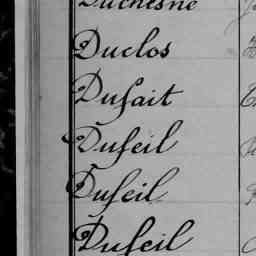 Duchesne
Duclos
Dufait
Dufeil
Dufeil
Dufeil